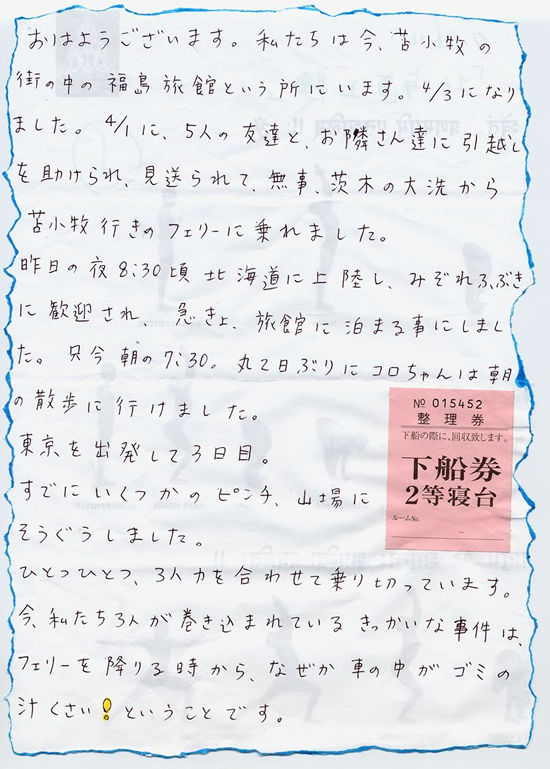 おはようございます。私たちは今、苫小牧の
街の中の福島旅館という所にいます。4/3になり
ました。4/1に、5人の友達と、お隣さん達に引越し
を助けられ、見送られて、無事、茨木の大洗から
苫小牧行きのフェリーに乗れました。
昨日の夜8:30頃北海道に上陸し、みぞれふぶき
に歓迎され、急きょ、旅館に泊まる事にしまし
た。只今朝の7:30。丸2日ぶりにコロちゃんは朝
の散歩に行けました。
東京を出発して3日目。
すでにいくつかのピンチ、山場に
そうぐうしました。
ひとつひとつ、3人力を合わせて乗り切っています。
今、私たち3人が巻き込まれているきっかいな事件は、
フェリーを降りる時から、なぜか車の中がゴミの
汁くさい!ということです。
No 015452
整理券
下船の際に、回収致します。
下船券
2等寝台
ルームNo.